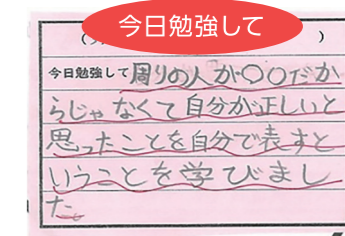 今日勉強して
(　　)
今日勉強して周りの人が〇〇だか
らじゃなくて自分が正しいと
思ったことを自分で表すと
いうことを学びまし
た